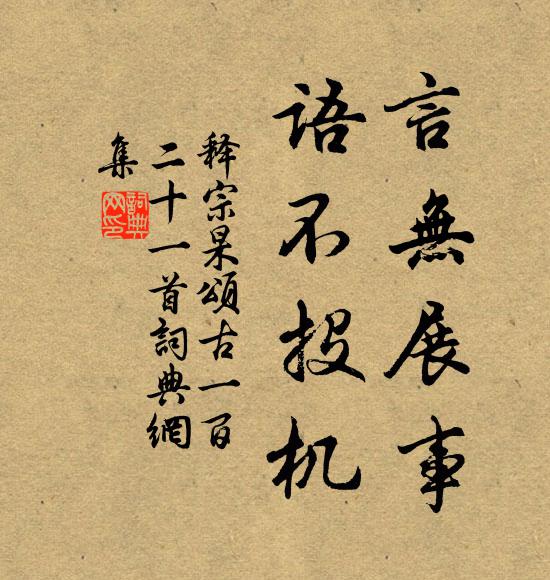 言無展事
語不投机
释宗杲頌古一百
二十一首詞典網
集
詞典網印